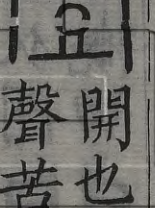 開也
聲苦